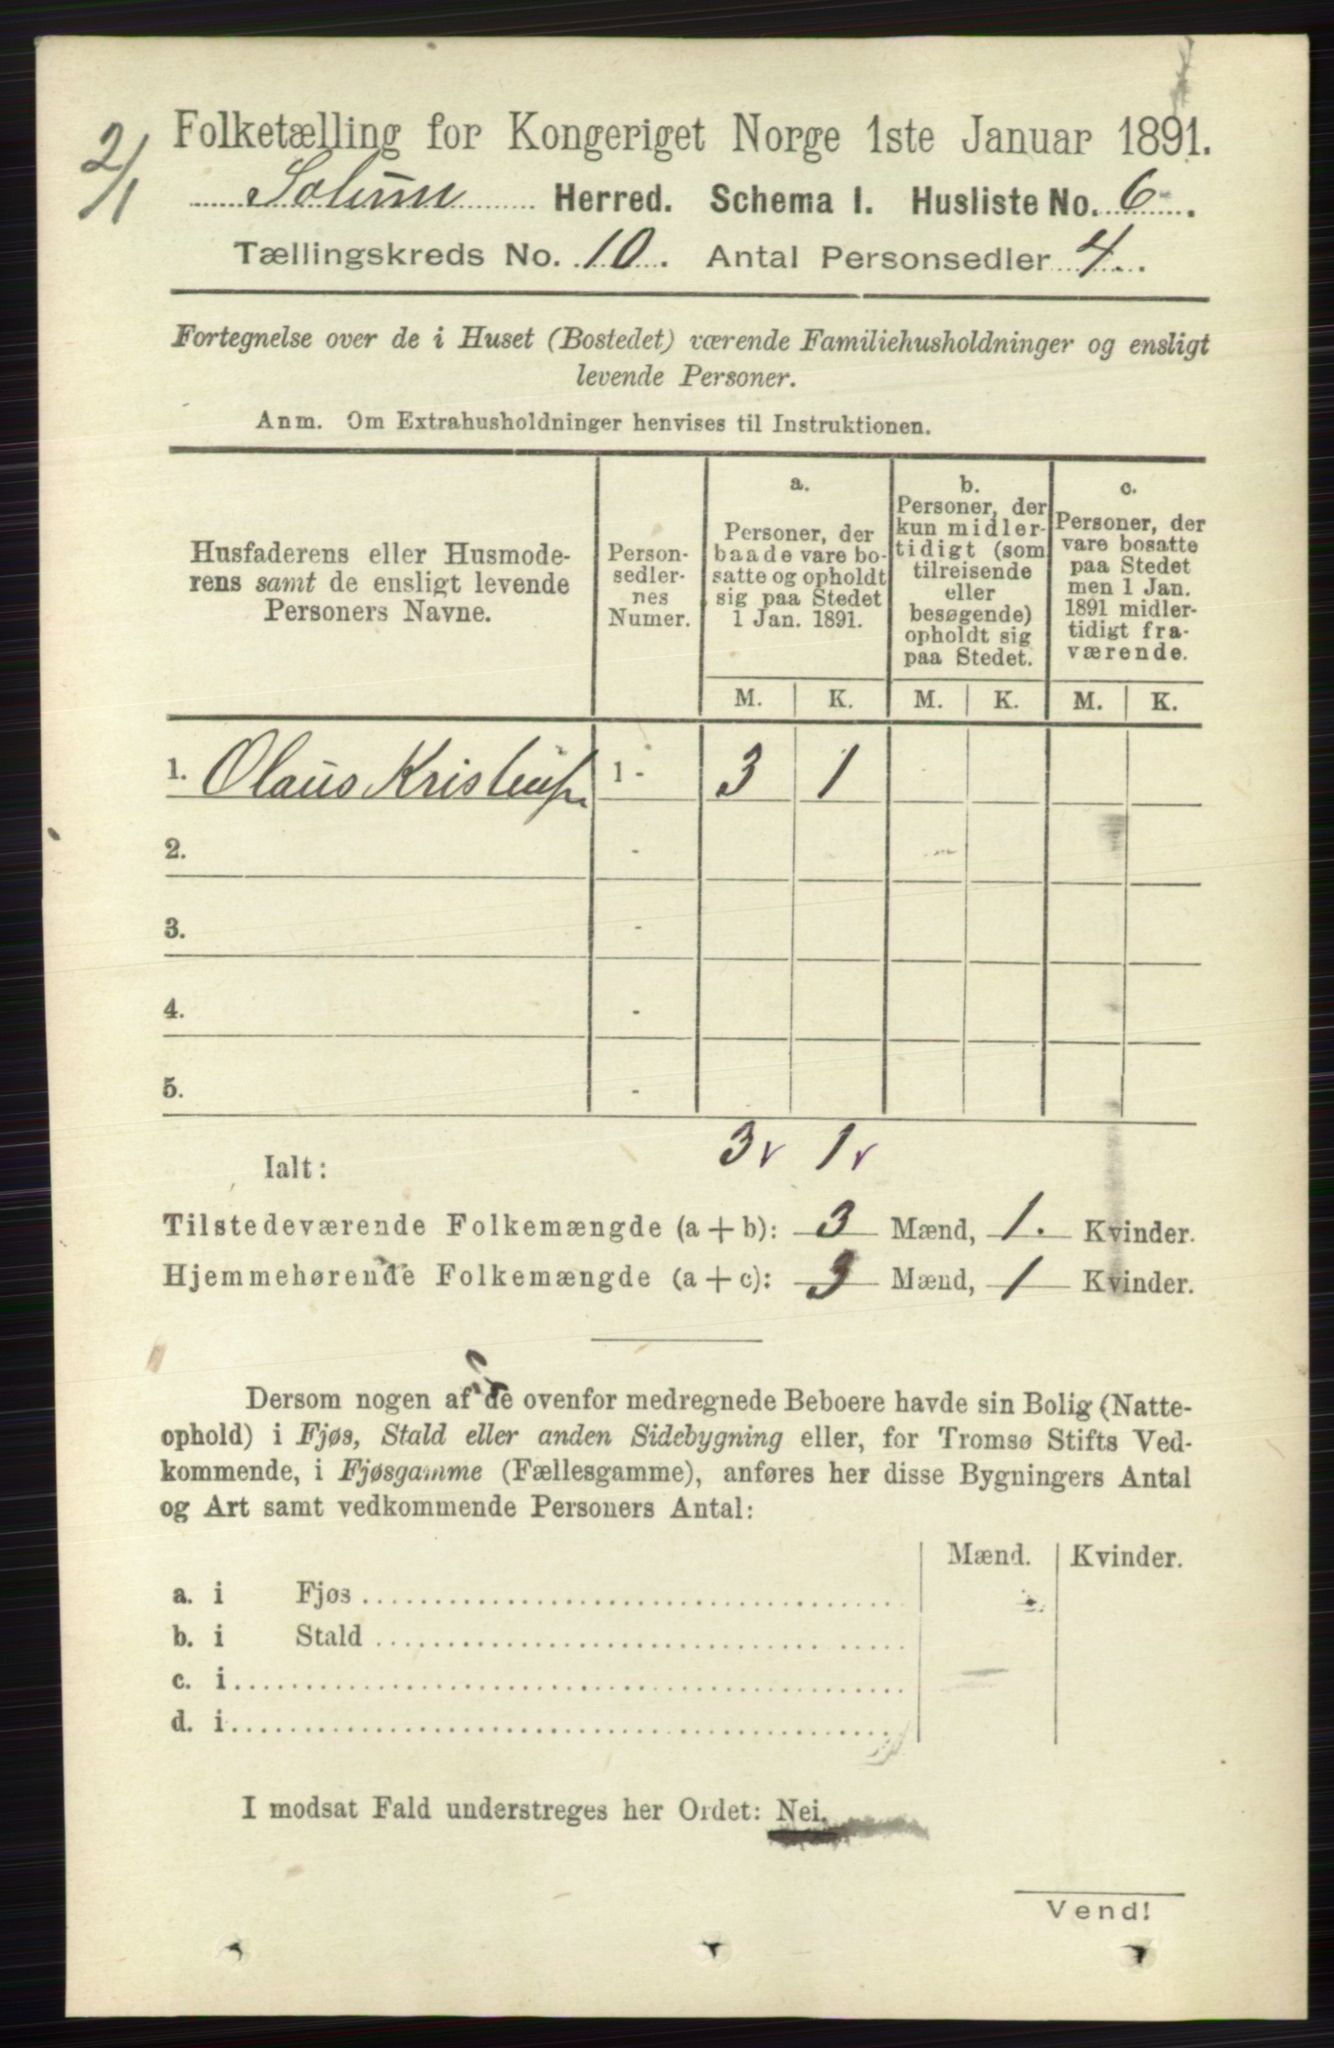 2/1
Folketælling for Kongeriget Norge 1ste Januar 1891.
Solum Herred. Schema I. Husliste No. 6.
Tællingskreds No. 10. Antal Personsedler 4.
Fortegnelse over de i Huset (Bostedet) værende Familiehusholdninger og ensligt
levende Personer.
Anm. Om Extrahusholdninger henvises til Instruktionen.
Husfaderens eller Husmode-
rens samt de ensligt levende
Personers Navne.
Person-
sedler-
nes
Numer.
a.
Personer, der
baade vare bo-
satte og opholdt
sig paa Stedet
1 Jan. 1891.
b.
Personer, der
kun midler-
tidigt (som
tilreisende
eller
besøgende)
opholdt sig
paa Stedet.
c.
Personer, der
vare bosatte
paa Stedet
men 1 Jan.
1891 midler-
tidigt fra-
værende.
M. K. M. K. M. K.
1. Olaus 1 - 3 1
2. -
3. -
4. -
5. -
3 v 1 v
Ialt:
Tilstedeværende Folkemængde (a + b): 3 Mænd, 1. Kvinder.
Hjemmehørende Folkemængde (a + c): 3 Mænd, 1 Kvinder.
Dersom nogen af de ovenfor medregnede Beboere havde sin Bolig (Natte-
ophold) i Fjøs, Stald eller anden Sidebygning eller, for Tromsø Stifts Ved-
kommende, i Fjøsgamme (Fællesgamme), anføres her disse Bygningers Antal
og Art samt vedkommende Personers Antal:
Mænd. Kvinder.
a. i Fjøs
b. i Stald
c. i
d. i
I modsat Fald understreges her Ordet: Nei.
Vend!